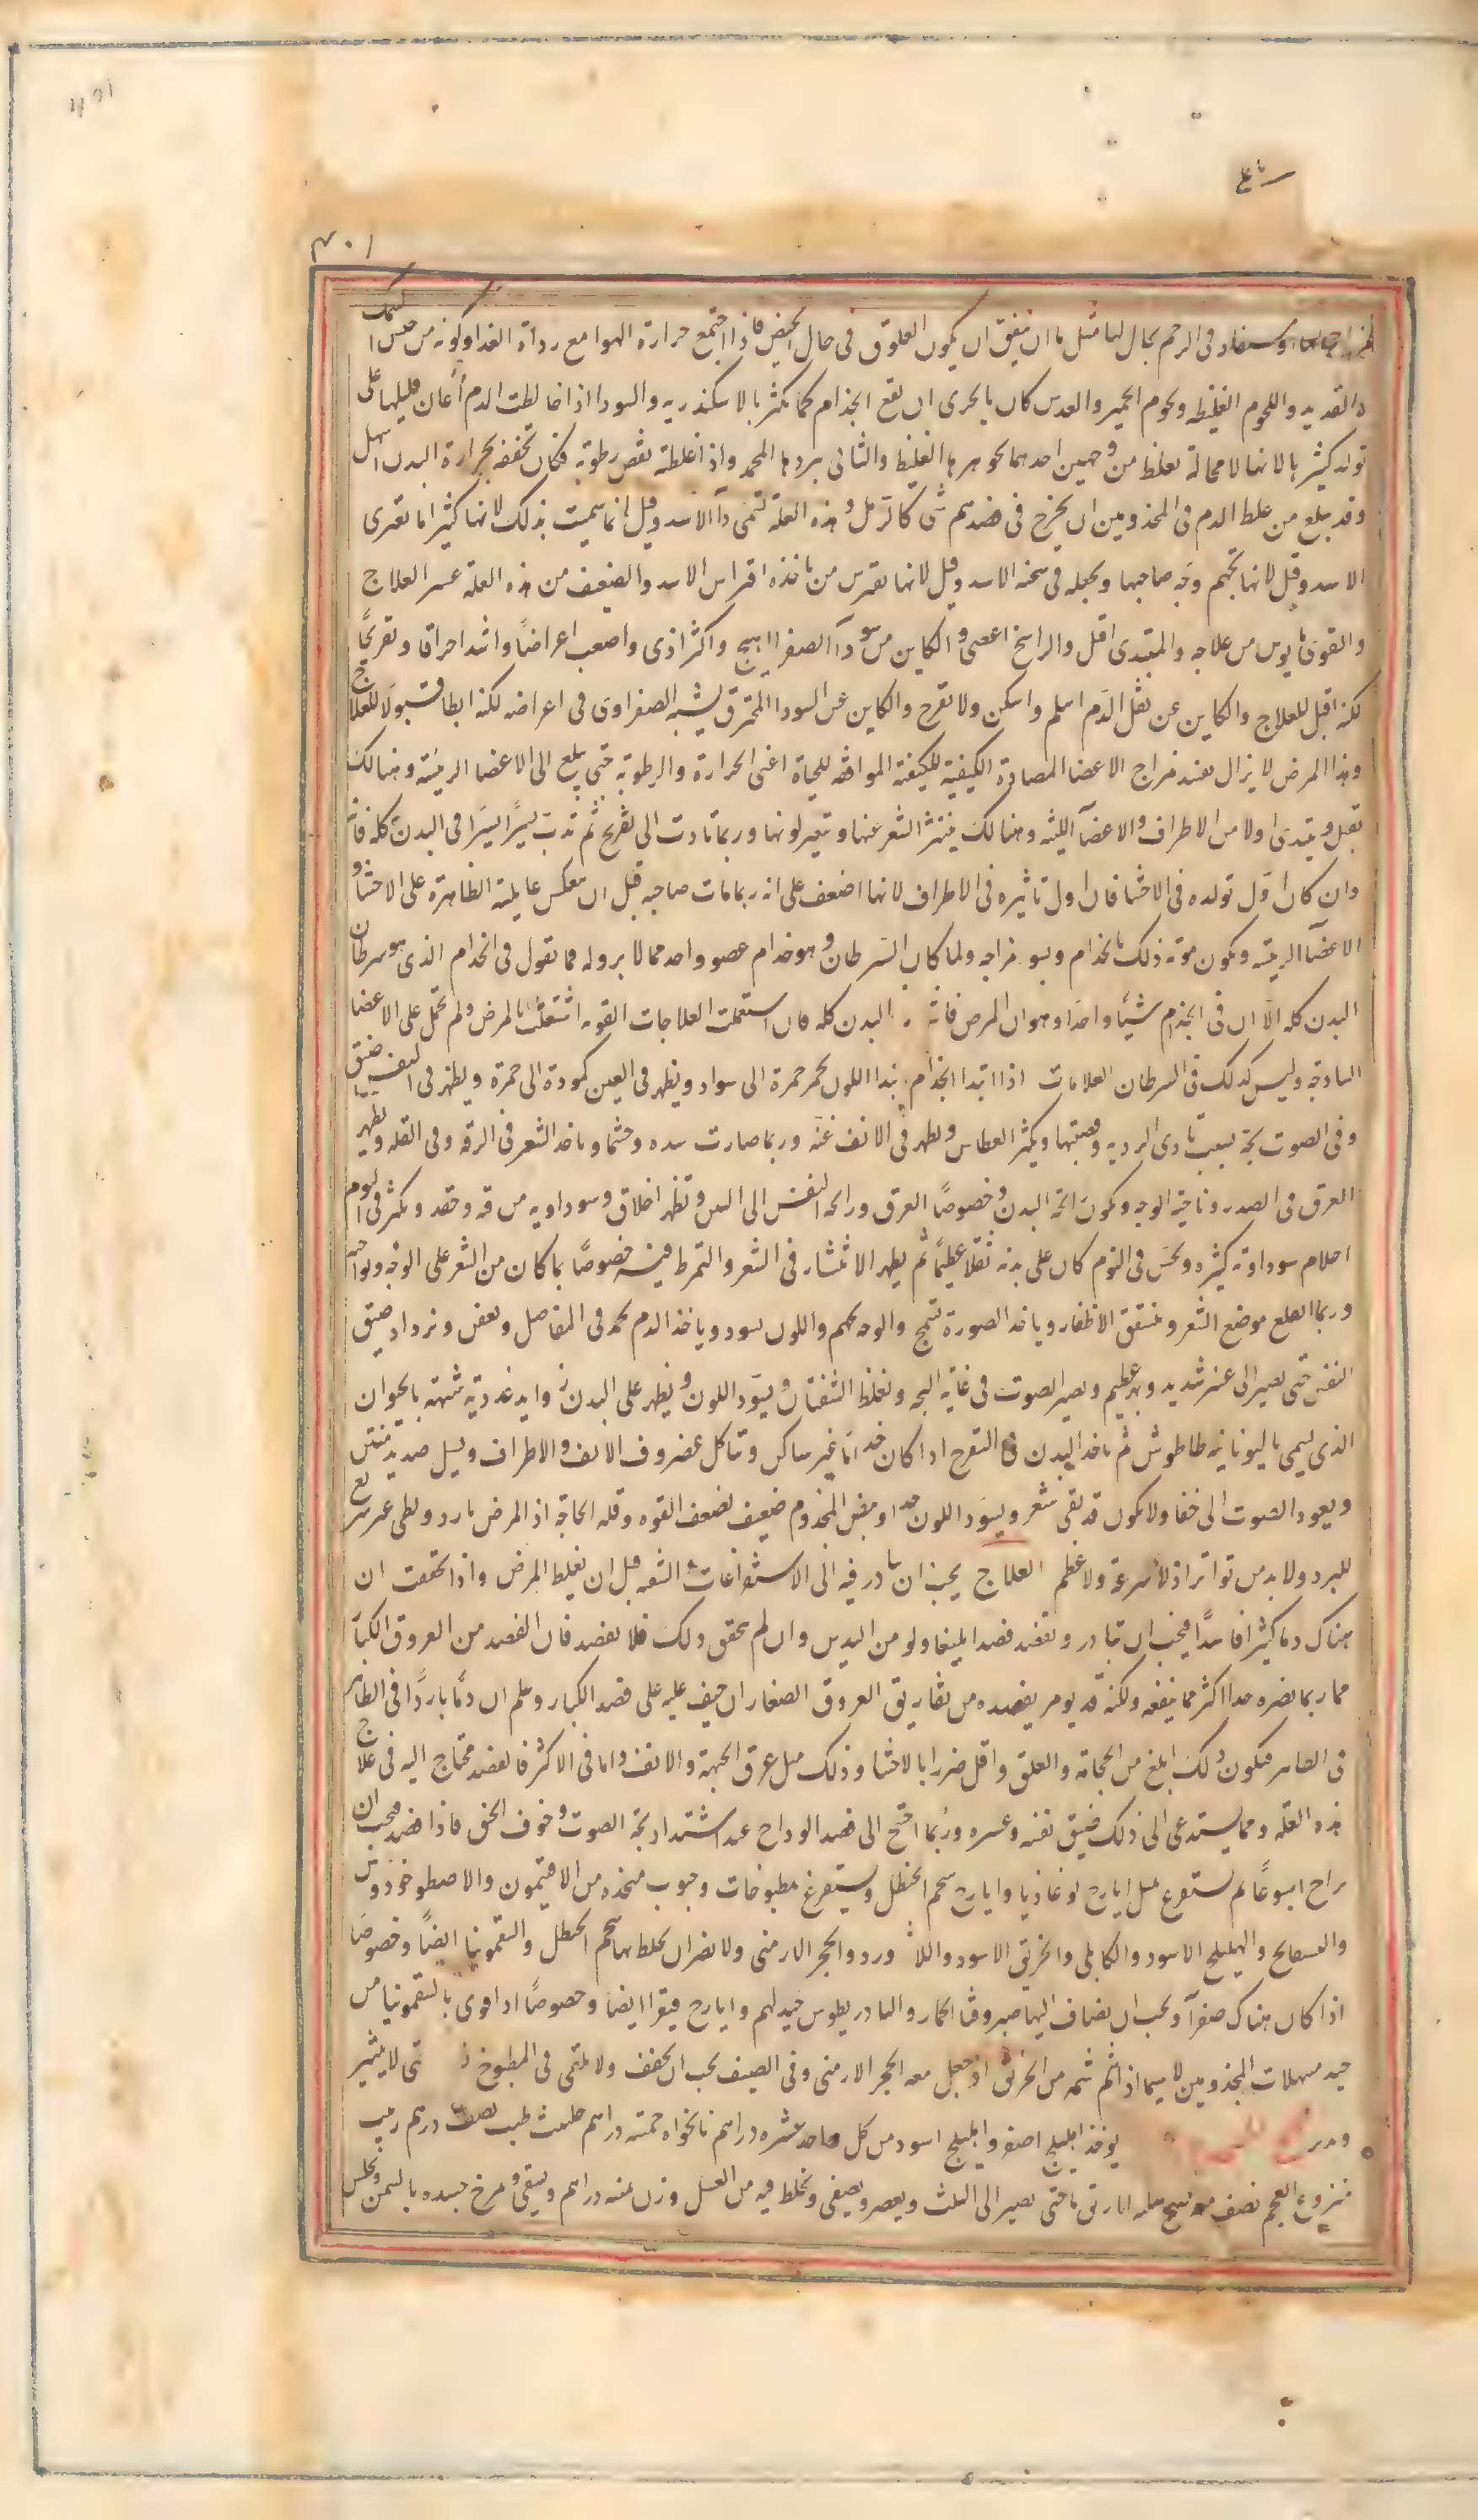 رابع
٤٠١
في الرحم بحال لها مثل ما ان يتفق ان يكون العلوق في حال الحيض فاذا اجتمع حرارة الهوا مع رداة الغدا وكونه من جنس السمك
والقديد واللحوم الغليظه ولحوم الحمير والعدس كان بالحرى ان يقع الجذام كما يكثر بالاسكندريه والسودا اذا خالطت الدم اعان قليلها على
تولد كثيرها لانها لا محالة تغلظ من وجهين احدهما بجوهرها الغليظ والثانى ببردها المجمد واذا غلظته نقص رطوبته فكان تجففه بحرارة البدن اسهل
وقد يبلغ من غلظ الدم فى المجذومين ان يخرج فى فصدهم شى كالرمل وهذه العلة تسمى دآ الاسد وقيل انما سميت بذلك لانها كثيرا ما تعترى
الاسد وقيل لانها تجهم وجه صاحبها وتجعله فى سحنه الاسد وقيل لانها تفترس من تاخذه افتراس الاسد والضعيف من هذه العلة عسر العلاج
والقوى مايوس من علاجه والمبتدى اقل والراسخ اعصى والكاين من سودآ الصفرا اهيج واكثر اذى واصعب اعراضاً واشد احراقا وتقريحًا
لكنه اقبل للعلاج والكاين عن ثفل الدم اسلم واسكن ولا تقرح والكاين عن السودا المحترق يشبه الصفراوى فى اعراضه لكنه ابطا قبولا للعلاج
وهذا المرض لا يزال يفسد مزاج الاعضا المضادة الكيفية للكيفية الموافقه للحياة اعنى الحرارة والرطوبة حتى يبلغ الى الاعضا الرئيسة وهنالك
يقتل ويبتدى اولا من الاطراف والاعضآ اللينه وهنالك ينتثر الشعر عنها وتتغير لونها وربما تادت الى تقريح ثم تدب يسيرًا يسيرًا فى البدن كله فانه
وان كان اول تولده فى الاحشا فان اول تاثيره فى الاطراف لانها اضعف على انه ربما مات صاحبه قبل ان ينعكس غايلته الظاهرة على الاحشا و
الاعضآ الرييسه ويكون موته ذلك بالجذام وبسو مزاجه ولما كان السرطان وهو جذام عضو واحد مما لا برو له فما تقول فى الجذام الذى هو سرطان
البدن كله الا ان فى الجذام شيئا واحدا وهو ان المرض فاش البدن كله فان استعملت العلاجات القويه اشتغلت بالمرض ولم تحمل على الاعضا
الساذجه وليس كذلك فى السرطان العلامات اذا ابتدا الجذام ابتدا اللون يحمر حمرة الى سواد ويظهر فى العين كمودة الى حمرة ويظهر فى النفس ضيق
وفى الصوت بحة بسبب تاذى الريه وقصبتها ويكثر العطاس ويظهر فى الانف غنة وربما صارت سده وخشما وياخذ الشعر فى الرقه وفى القله ويظهر
العرق فى الصدر وناحية الوجه ويكون رايحة البدن وخصوصًا العرق ورايحة النفس الى النتن وتظهر اخلاق سوداويه من تيه وحقد ويكثر فى النوم
احلام سوداويه كثيره ويحس فى النوم كان على بدنه ثقلا عظيمًا ثم يظهر الانتثار فى الشعر والتمرط فيه خصوصًا بما كان من الشعر على الوجه ونواحيه
وربما انقلع موضع الشعر وتتشقق الاظفار وياخذ الصورة تسمج والوجه يجهم واللون يسود وياخذ الدم يجمد فى المفاصل ويعفن ويزداد ضيق
النفس حتى يصير الى عسر شديد وبهر عظيم ويصير الصوت فى غاية البحه وتغلظ الشفتان ويسود اللون ويظهر على البدن زوايد غددية شبيهه بالحيوان
الذى يسمى باليونانيه طاطوش ثم ياخذ البدن فى التقرح اذا كان جذاما غير ساكن وتتاكل غضروف الانف والاطراف ويسيل صديد منتن
ويعود الصوت الى خفا ولا يكون قد بقى شعر ويسود اللون جدا ونبض المجذوم ضعيف لضعف القوه وقله الحاجة اذ المرض بارد وبطى غير سريع
للبرد ولا بد من تواتر اذ لا سرعة ولا عظم العلاج يجب ان يبادر فيه الى الاستفراغات والتنقيه قبل ان يغلظ المرض واذا تحققت ان
هناك دما كثيرا فاسدًا فيجب ان تبادر وتفصد فصدا بليغا ولو من اليدين وان لم يتحقق ذلك فلا تفصد فان الفصد من العروق الكبار
مما ربما يضره جدا اكثر مما ينفعه ولكنه قد يومر بفصده من تفاريق العروق الصغار ان خيف عليه على فصد الكبار وعلم ان دمًا باردًا فى الظاهر
فى الظاهر فيكون ذلك ابلغ من الحجامة والعلق واقل ضررا بالاحشا وذلك مثل عرق الجبهة والانف واما فى الاكثر فالفصد محتاج اليه فى علاج
هذه العلة ومما يستدعى الى ذلك ضيق نفسه وعسره وربما احتيج الى فصد الوداج عند اشتداد بحة الصوت وخوف الخنق فاذا فصد فيجب ان
يراح اسبوعًا ثم يستفرغ بمثل ايارج لوغاذيا وايارج شحم الحنظل ويستفرغ بمطبوخات وحبوب متخذه من الافتيمون والاصطوخودوس
والبسفايج والهليلج الاسود والكابلى والخربق الاسود واللازورد والحجر الارمنى ولا يضر ان يخلط بها شحم الحنظل والسقمونيا ايضًا وخصوصًا
اذا كان هناك صفرآ ويجب ان يضاف اليها صبر وقثا الحمار والثادريطوس جيد لهم وايارج فيقرا ايضا وخصوصًا اذا قوى بالسقمونيا من
جيد مسهلات المجذومين لا سيما اذا اثم شمه من الخربق اذ جعل معه الحجر الارمنى وفى الصيف يجب ان يخفف ولا يلقى فى المطبوخ لا يثير
يوخذ اهليلج اصفر واهليلج اسود من كل واحد عشره دراهم نانخواه خمسه دراهم حلتيت طيب نصف درهم زبيب
منزوع العجم نصف يطبخ حتى يصير الى الثلث ويعصر ويصفى ويخلط فيه من العسل وزن دراهم ويسقى ويمرخ جسده بالسمن ويجلس